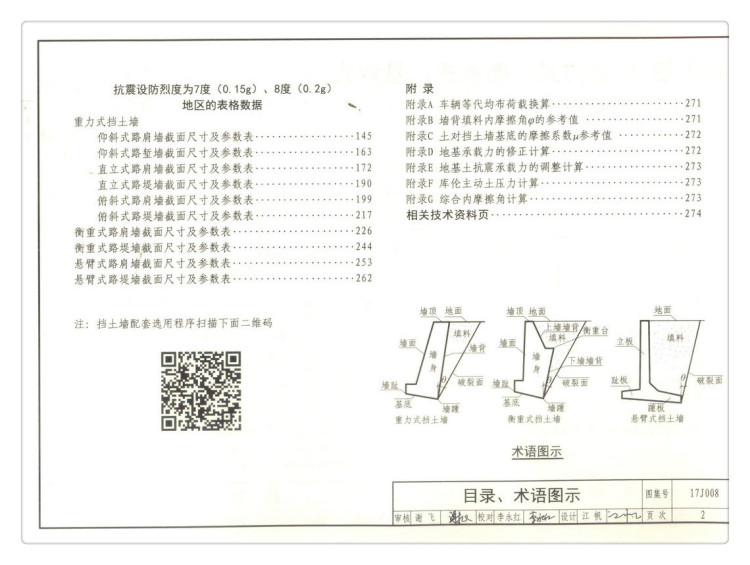 抗震设防烈度为7度(0.15g)、8度(0.2g)
地区的表格数据
重力式挡土墙
仰斜式路肩墙截面尺寸及参数表················145
仰斜式路堑墙截面尺寸及参数表················163
直立式路肩墙截面尺寸及参数表················172
直立式路堤墙截面尺寸及参数表················190
俯斜式路肩墙截面尺寸及参数表················199
俯斜式路堤墙截面尺寸及参数表················217
衡重式路肩墙截面尺寸及参数表····················226
衡重式路堤墙截面尺寸及参数表····················244
悬臂式路肩墙截面尺寸及参数表····················253
悬臂式路堤墙截面尺寸及参数表····················262
注: 挡土墙配套选用程序扫描下面二维码
附 录
附录A 车辆等代均布荷载换算······················271
附录B 墙背填料内摩擦角φ的参考值 ················271
附录C 土对挡土墙基底的摩擦系数μ参考值 ··········272
附录D 地基承载力的修正计算······················272
附录E 地基土抗震承载力的调整计算················273
附录F 库伦主动土压力计算························273
附录G 综合内摩擦角计算··························273
相关技术资料页································274
墙顶 地面
填料
墙面
墙身
墙背
θ
墙趾
破裂面
基底
墙踵
重力式挡土墙
墙顶 地面
上墙墙背
衡重台
填料
墙面
墙身
下墙墙背
θ
墙趾
破裂面
基底
墙踵
衡重式挡土墙
地面
立板
填料
θ
趾板
破裂面
踵板
悬臂式挡土墙
术语图示
目录、术语图示
图集号 17J008
审核 谢飞 校对 李永红 李永红 设计 江帆 页次 2